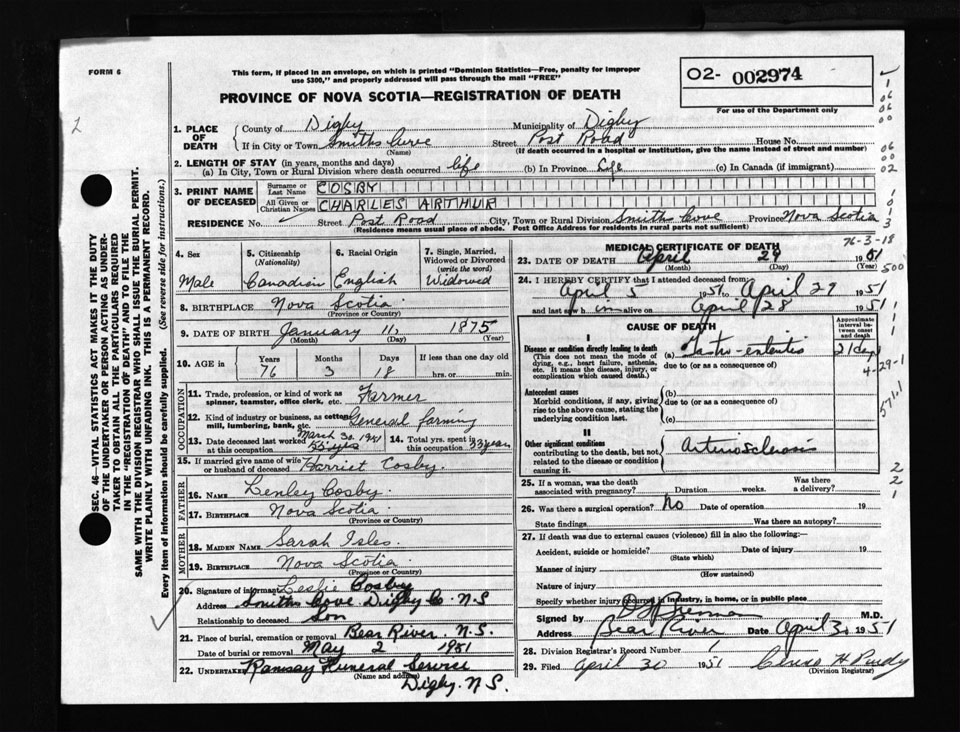 FORM 6
This form, if placed in an envelope, on which is printed "Dominion Statistics—Free, penalty for improper
use $300," and properly addressed will pass through the mail "FREE"
PROVINCE OF NOVA SCOTIA—REGISTRATION OF DEATH
O2- 002974
For use of the Department only
SEC. 46—VITAL STATISTICS ACT MAKES IT THE DUTY
OF THE UNDERTAKER OR PERSON ACTING AS UNDER-
TAKER TO OBTAIN ALL THE PARTICULARS REQUIRED
IN THE "REGISTRATION OF DEATH" AND TO FILE THE
SAME WITH THE DIVISION REGISTRAR WHO SHALL ISSUE THE BURIAL PERMIT.
WRITE PLAINLY WITH UNFADING INK. THIS IS A PERMANENT RECORD.
Every item of information should be carefully supplied. (See reverse side for instructions.)
1. PLACE OF DEATH
County of Digby Municipality of Digby
If in City or Town Smiths Cove Street Post Road House No.
(Name) (If death occurred in a hospital or institution, give the name instead of street and number)
2. LENGTH OF STAY (in years, months and days)
(a) In City, Town or Rural Division where death occurred life (b) In Province Life (c) In Canada (if immigrant)
3. PRINT NAME OF DECEASED
Surname or Last Name COSBY
All Given or Christian Names CHARLES ARTHUR
RESIDENCE No. Street Post Road City, Town or Rural Division Smith Cove Province Nova Scotia
(Residence means usual place of abode. Post Office Address for residents in rural parts not sufficient)
4. Sex Male
5. Citizenship (Nationality) Canadian
6. Racial Origin English
7. Single, Married, Widowed or Divorced (write the word) Widowed
8. BIRTHPLACE Nova Scotia
(Province or Country)
9. DATE OF BIRTH January 11, 1875
(Month) (Day) (Year)
10. AGE in Years 76 Months 3 Days 18 If less than one day old hrs. or min.
OCCUPATION
11. Trade, profession, or kind of work as spinner, teamster, office clerk, etc. Farmer
12. Kind of industry or business, as cotton mill, lumbering, bank, etc. General farming
13. Date deceased last worked at this occupation March 30 1941
14. Total yrs. spent in this occupation 33 years
15. If married give name of wife or husband of deceased Harriet Cosby
FATHER
16. NAME Lenley Cosby
17. BIRTHPLACE Nova Scotia
(Province or Country)
MOTHER
18. MAIDEN NAME Sarah Isles
19. BIRTHPLACE Nova Scotia
(Province or Country)
20. Signature of informant Leslie Cosby
Address Smiths Cove Digby Co. N.S
Relationship to deceased Son
21. Place of burial, cremation or removal Bear River. N.S.
Date of burial or removal May 2 1951
22. UNDERTAKER Ramsay Funeral Service
(Name and address)
Digby. N.S.
MEDICAL CERTIFICATE OF DEATH
76-3-18
23. DATE OF DEATH April 29 1951
(Month) (Day) (Year)
24. I HEREBY CERTIFY that I attended deceased from
April 5 1951 to April 29 1951
and last saw him alive on April 28 1951
CAUSE OF DEATH
Approximate interval between onset and death
I
Disease or condition directly leading to death
(This does not mean the mode of dying, e.g., heart failure, asthenia, etc. It means the disease, injury, or complication which caused death.)
(a) Gastro-enteritis 21 days
due to (or as a consequence of)
4-29-1
571.1
Antecedent causes
Morbid conditions, if any, giving rise to the above cause, stating the underlying condition last.
(b)
due to (or as a consequence of)
(c)
II
Other significant conditions contributing to the death, but not related to the disease or condition causing it.
Arteriosclerosis
25. If a woman, was the death associated with pregnancy? Duration weeks. Was there a delivery?
26. Was there a surgical operation? No Date of operation 19
State findings Was there an autopsy?
27. If death was due to external causes (violence) fill in also the following:—
Accident, suicide or homicide? Date of injury 19
(State which)
Manner of injury
(How sustained)
Nature of injury
Specify whether injury occurred in industry, in home, or in public place
Signed by M.D.
Address Bear River Date April 30 1951
28. Division Registrar's Record Number 7
29. Filed April 30 1951 H Purdy
(Division Registrar)